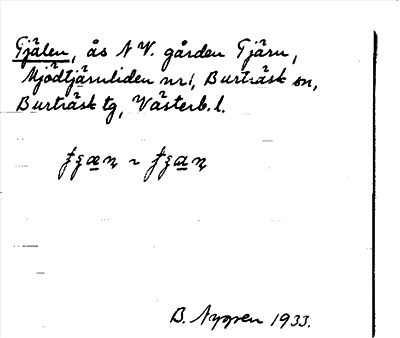 Tjälen, ås NV. gården Tjärn,
Mjödtjärnliden nr 1, Burträsk sn,
Burträsk tg, Västerb. l.
B. Nygren 1933.